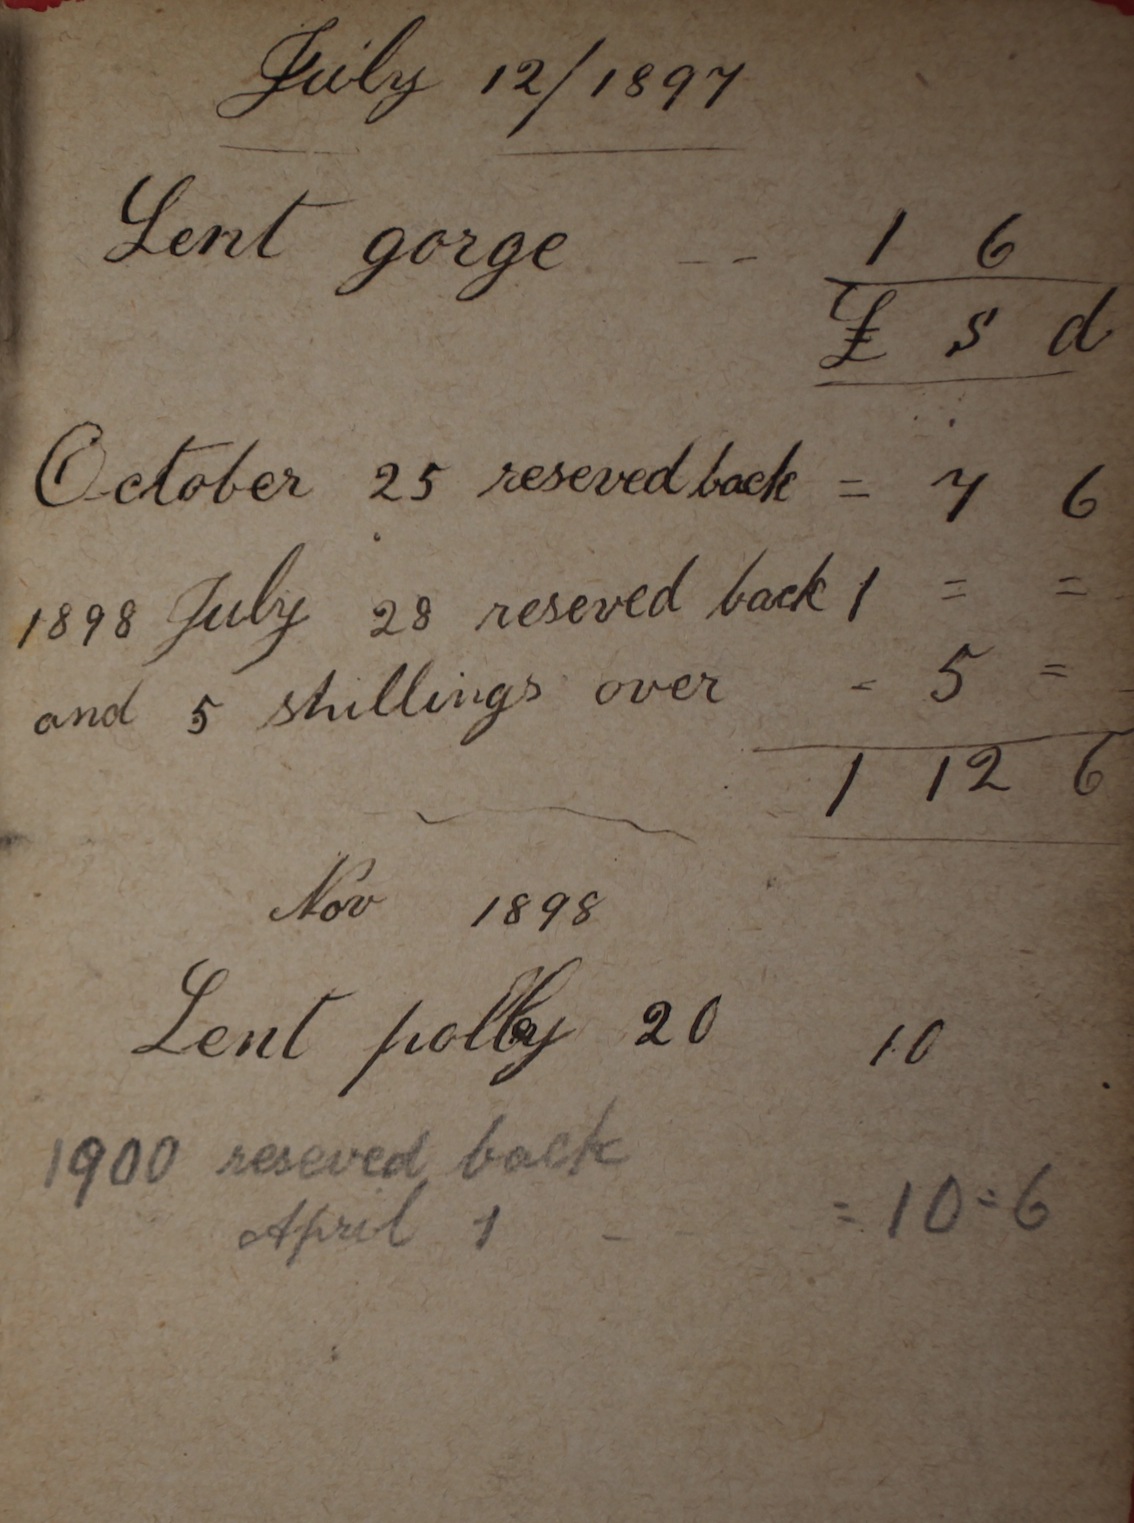 July 12/1897
Lent gorge -- 1 6
£ s d
October 25 reseved back = 7 6
1898 July 28 reseved back 1 = =
and 5 shillings over - 5 =
1 12 6
Nov 1898
Lent polly 20 10
1900 reseved back
April 1 - = 10 = 6